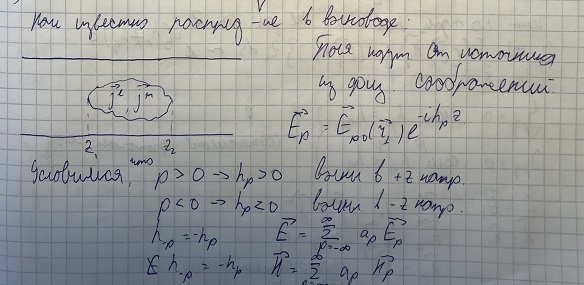 Нам известно распред-ие в волноводе:
Поля идут от источника
из физ. соображений
j⃗ᵉ, j⃗ᵐ
E⃗ₚ = E⃗ₚ₀(r⃗⊥) e^(-ihₚz)
z₁ z₂
Условимся, что p > 0 → hₚ > 0 волны в +z напр.
p < 0 → hₚ < 0 волны в -z напр.
h₋ₚ = -hₚ E⃗ = Σ_(p=-∞)^∞ aₚ E⃗ₚ
h₋ₚ = -hₚ H⃗ = Σ^∞ aₚ H⃗ₚ